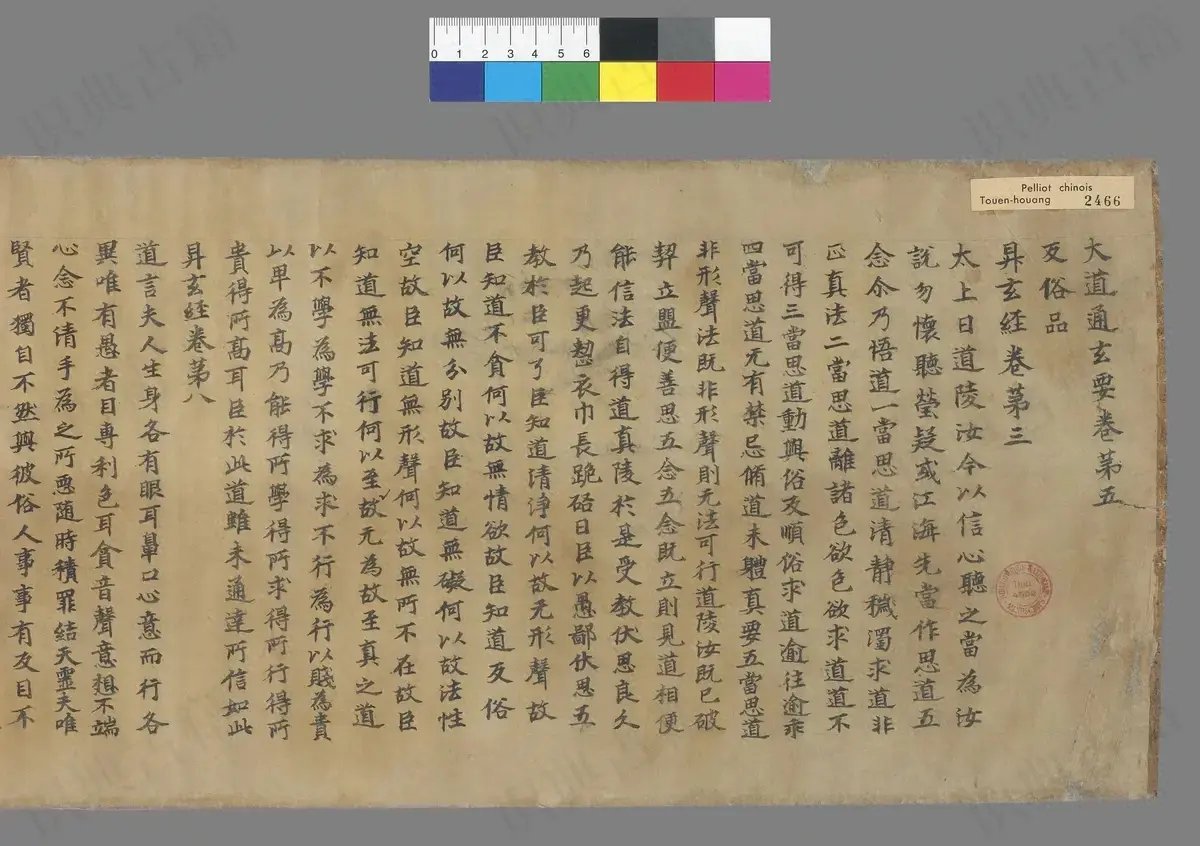 Pelliot chinois
Touen-houang 2466
0 1 2 3 4 5 6
大道通玄要卷第五
反俗品
昇玄経卷第三
太上曰道陵汝今以信心聽之當為汝
說勿懷聽瑩疑或江海先當作思道五
念尒乃悟道一當思道清静穢濁求道非
正真法二當思道離諸色欲色欲求道道不
可得三當思道動與俗反順俗求道逾往逾乖
四當思道元有禁忌脩道未體真要五當思道
非形聲法既非形聲則无法可行道陵汝既已破
契立盟便善思五念五念既立則見道相便
能信法自得道真陵於是受教伏思良久
乃起更懃衣巾長跪硌曰臣以愚鄙伏思五
教於臣可了臣知道清浄何以故元形聲故
臣知道不貪何以故無情欲故臣知道反俗
何以故無分別故臣知道無礙何以故法性
空故臣知道無形聲何以故無所不在故臣
知道無法可行何以至故元為故至真之道
以不學為學不求為求不行為行以賤為貴
以卑為高乃能得所學得所求得所行得所
貴得所高耳臣於此道雖未通達所信如此
昇玄經卷第八
道言夫人生身各有眼耳鼻口心意而行各
異唯有愚者目専利色耳貪音聲意想不端
心念不清手為之所惡随時積罪結天靈夫唯
賢者獨自不然與彼俗人事事有反目不